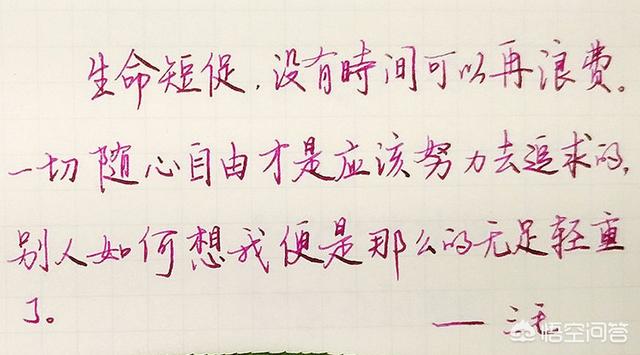 生命短促,没有時间可以再浪费。
一切随心自由才是应该努力去追求的,
别人如何想我便是那么的无足轻重
了。 — 三毛
悟空问答